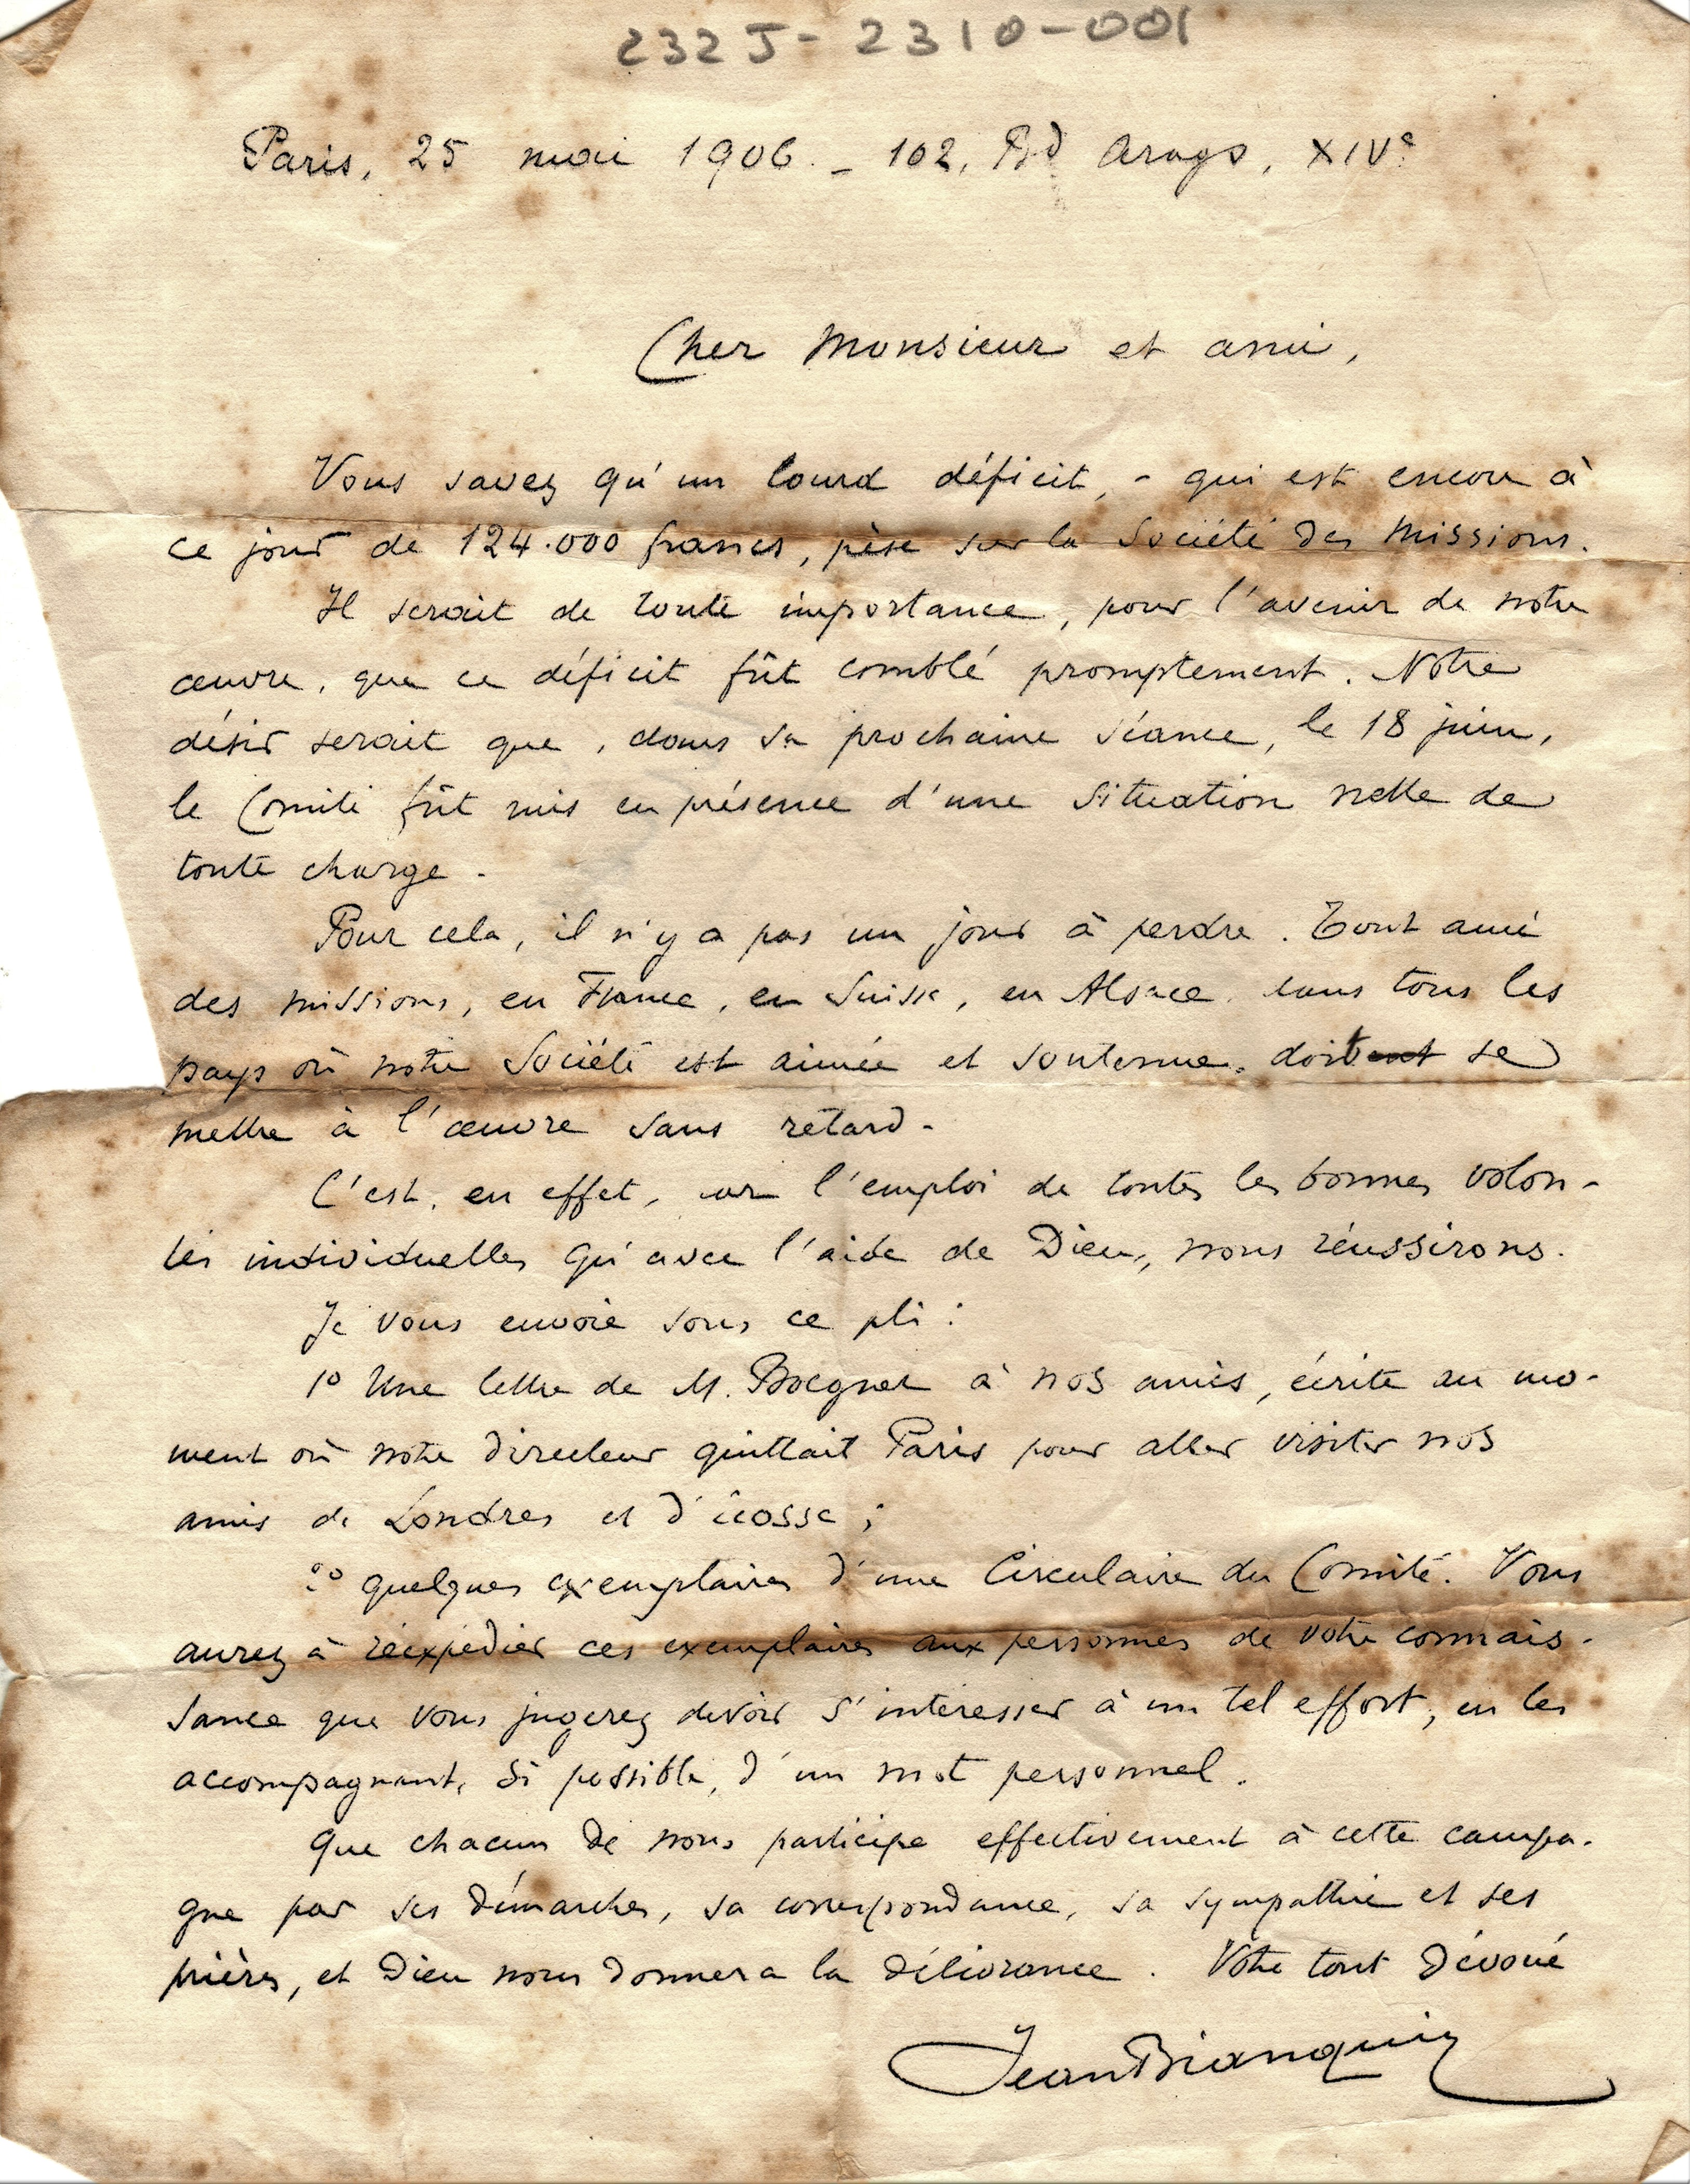 232J-2310-001
Paris, 25 mai 1906. _ 102, Bd Arago, XIVe
Cher Monsieur et ami,
Vous savez qu'un lourd déficit, - qui est encore à
ce jour de 124.000 francs, pèse sur la Société des Missions.
Il serait de toute importance, pour l'avenir de notre
œuvre, que ce déficit fût comblé promptement. Notre
désir serait que, dans sa prochaine séance, le 18 juin,
le Comité fût mis en présence d'une situation nette de
toute charge.
Pour cela, il n'y a pas un jour à perdre. Tout ami
des missions, en France, en Suisse, en Alsace, dans tous les
pays où notre Société est aimée et soutenue, doit se
mettre à l'œuvre sans retard.
C'est, en effet, par l'emploi de toutes les bonnes volon-
tés individuelles qu'avec l'aide de Dieu, nous réussirons.
Je vous envoie sous ce pli :
1° Une lettre de M. Boegner à nos amis, écrite au mo-
ment où notre directeur quittait Paris pour aller visiter nos
amis de Londres et d'Ecosse ;
2° quelques exemplaires d'une Circulaire du Comité. Vous
aurez à réexpédier ces exemplaires aux personnes de votre connais-
sance que vous jugerez devoir s'intéresser à un tel effort, en les
accompagnant, si possible, d'un mot personnel.
Que chacun de nous participe effectivement à cette campa-
gne par ses démarches, sa correspondance, sa sympathie et ses
prières, et Dieu nous donnera la délivrance. Votre tout dévoué
Jean Bianquis